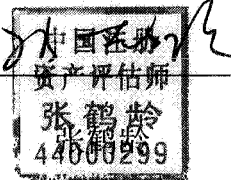 中国注册
资产评估师
张鹤龄
张鹤龄
44000299